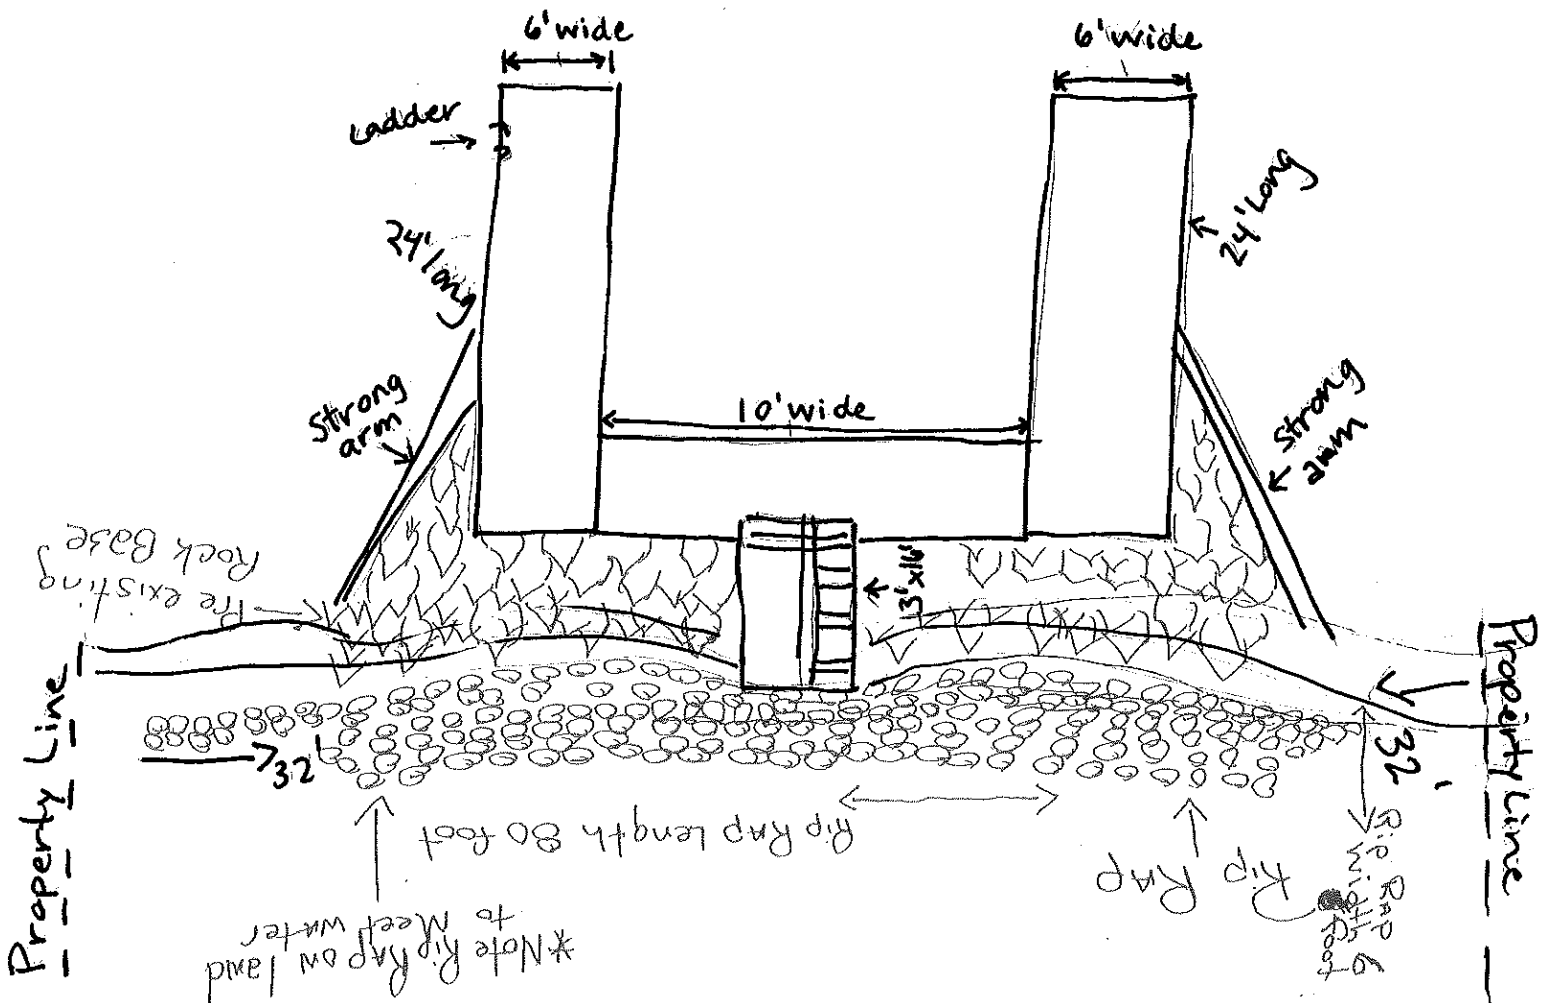 6' wide
6' wide
Ladder
24' Long
24' Long
10' wide
Strong
arm
Strong
arm
3'x16'
Pre existing
Rock Base
Property Line
Property Line
32'
32'
Rip Rap Length 80 foot
Rip Rap
Rip Rap
width 6
foot
*Note Rip Rap on land
to Meet water